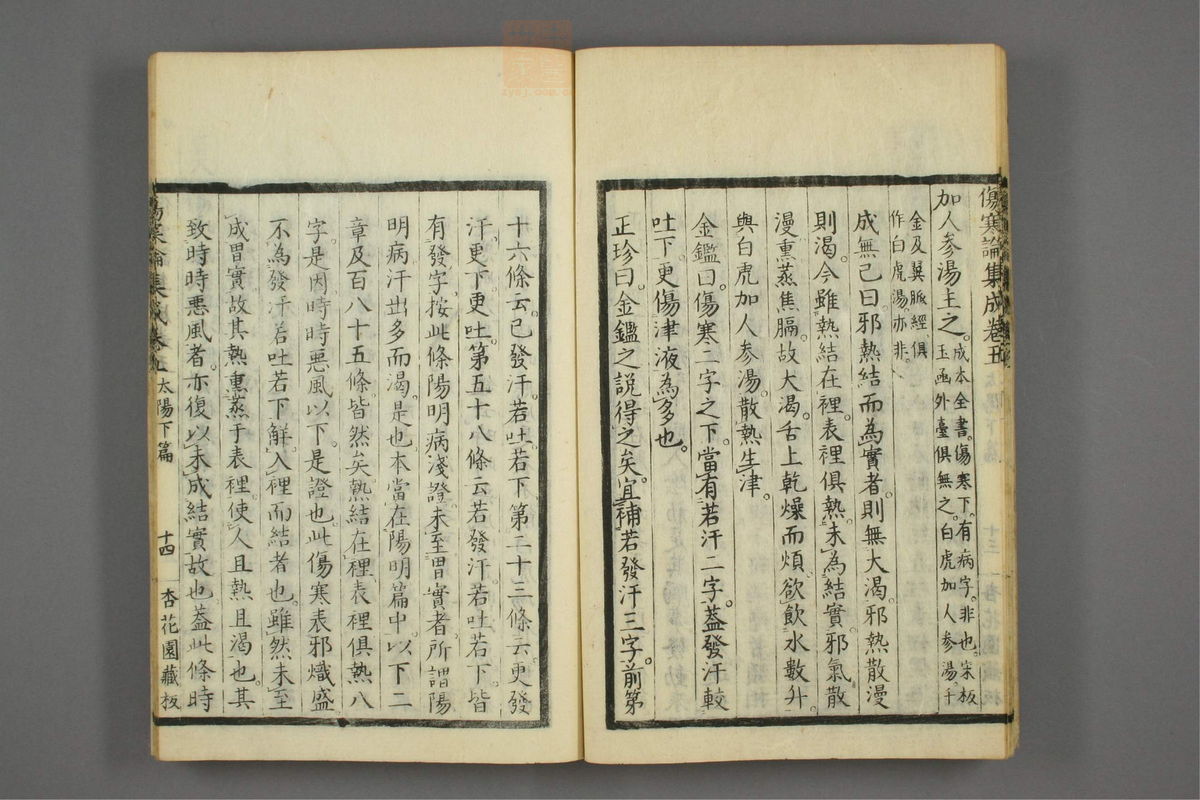 傷寒論集成卷五
加人參湯主之。成本全書。傷寒下。有病字。非也。宋板
玉函外臺俱無之。白虎加人參湯。千
金及翼脈經。俱
作白虎湯。亦非。
成無己曰。邪熱結而為實者。則無大渴。邪熱散漫
則渴。今雖熱結在裡。表裡俱熱。未為結實。邪氣散
漫。熏蒸焦膈。故大渴。舌上乾燥而煩。欲飲水數升。
與白虎加人參湯。散熱生津。
金鑑曰。傷寒二字之下。當有若汗二字。蓋發汗較
吐下。更傷津液為多也。
正珍曰。金鑑之說得之矣。宜補若發汗三字。前第
十六條云。已發汗。若吐。若下。第二十三條云。更發
汗。更下。更吐。第五十八條云。若發汗。若吐若下。皆
有發字。按此條陽明病淺證。未至胃實者。所謂陽
明病汗出多而渴。是也。本當在陽明篇中。以下二
章及百八十五條。皆然矣。熱結在裡。表裡俱熱八
字。是因。時時惡風以下。是證也。此傷寒表邪熾盛。
不為發汗若吐若下解。入裡而結者也。雖然未至
成胃實。故其熱熏蒸于表裡。使人且熱且渴也。其
致時時惡風者。亦復以未成結實故也。蓋此條時
傷寒論集成卷 太陽下篇 十四 杏花園藏板